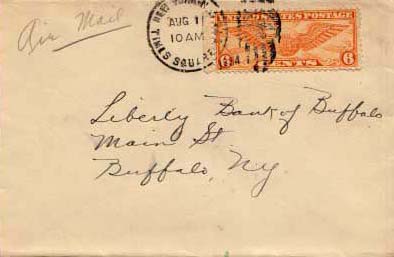 Air Mail
AUG 11
10 AM
TIMES SQUARE
UNITED STATES POSTAGE
6 CENTS 6
Liberty Bank of Buffalo
Main St
Buffalo, Ny.